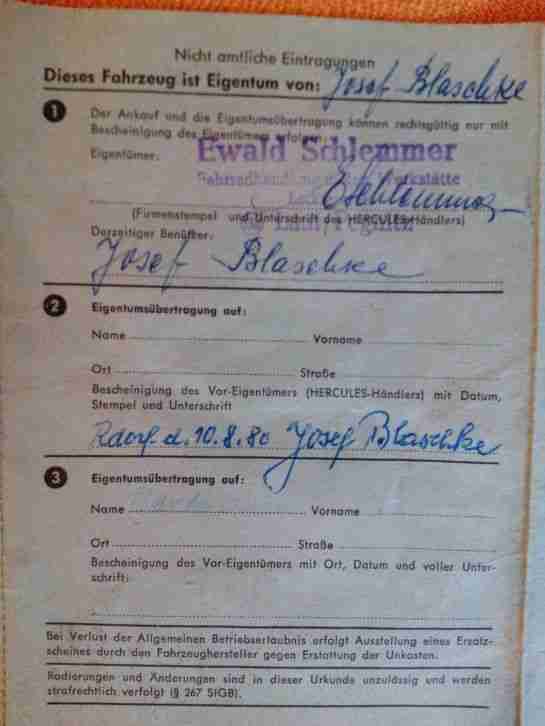 Nicht amtliche Eintragungen
Dieses Fahrzeug ist Eigentum von: Josef Blaschke
1 Der Ankauf und die Eigentumsübertragung können rechtsgültig nur mit
Bescheinigung des Eigentümers erfolgen.
Eigentümer: Ewald Schlemmer
Fahrradhandlung Werkstätte
(Firmenstempel und Unterschrift des HERCULES-Händlers)
Derzeitiger Benützer:
Josef Blaschke
2 Eigentumsübertragung auf:
Name Vorname
Ort Straße
Bescheinigung des Vor-Eigentümers (HERCULES-Händlers) mit Datum,
Stempel und Unterschrift
Rdorf. d. 10.8.80 Josef Blaschke
3 Eigentumsübertragung auf:
Name Vorname
Ort Straße
Bescheinigung des Vor-Eigentümers mit Ort, Datum und voller Unter-
schrift:
Bei Verlust der Allgemeinen Betriebserlaubnis erfolgt Ausstellung eines Ersatz-
scheines durch den Fahrzeughersteller gegen Erstattung der Unkosten.
Radierungen und Änderungen sind in dieser Urkunde unzulässig und werden
strafrechtlich verfolgt (§ 267 StGB).